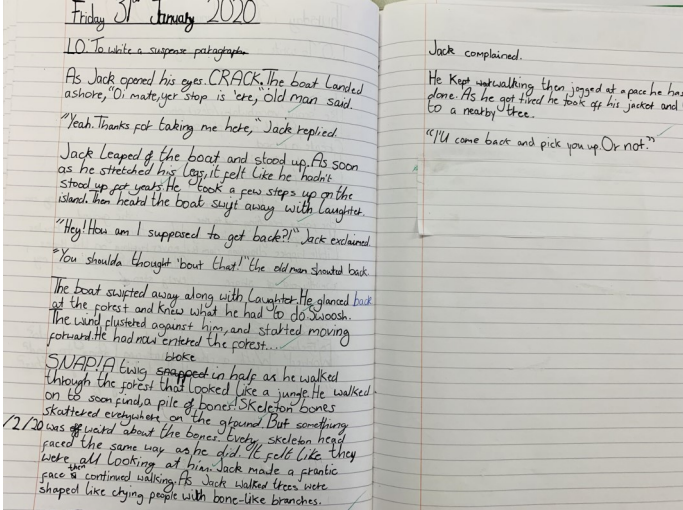 Friday 31st January 2020
LO: To write a suspense paragraph
As Jack opened his eyes. CRACK. The boat Landed
ashore, "Oi mate, yer stop is 'ere," old man said.
"Yeah. Thanks for taking me here," Jack replied.
Jack Leaped of the boat and stood up. As soon
as he stretched his Legs, it felt like he hadn't
stood up for years. He took a few steps up on the
island. Then heard the boat swift away with Laughter.
"Hey! How am I supposed to get back?!" Jack exclaimed.
"You shoulda thought 'bout that!" the old man shouted back.
The boat swifted away along with Laughter. He glanced back
at the forest and knew what he had to do. Swoosh.
The wind flustered against him, and started moving
forward. He had now entered the forest...
broke
SNAP! A twig snapped in half as he walked
through the forest that looked like a jungle. He walked
on to soon find, a pile of bones! Skeleton bones
skattered everywhere on the ground. But something
/2/20 was weird about the bones. Every, skeleton head
faced the same way as he did. It felt like they
were all looking at him. Jack made a frantic
face then continued walking. As Jack walked trees were
shaped like crying people with bone-like branches.
Jack complained.
He Kept walking then jogged at a pace he has
done. As he got tired he took off his jacket and
to a nearby tree.
"I'll come back and pick you up. Or not."